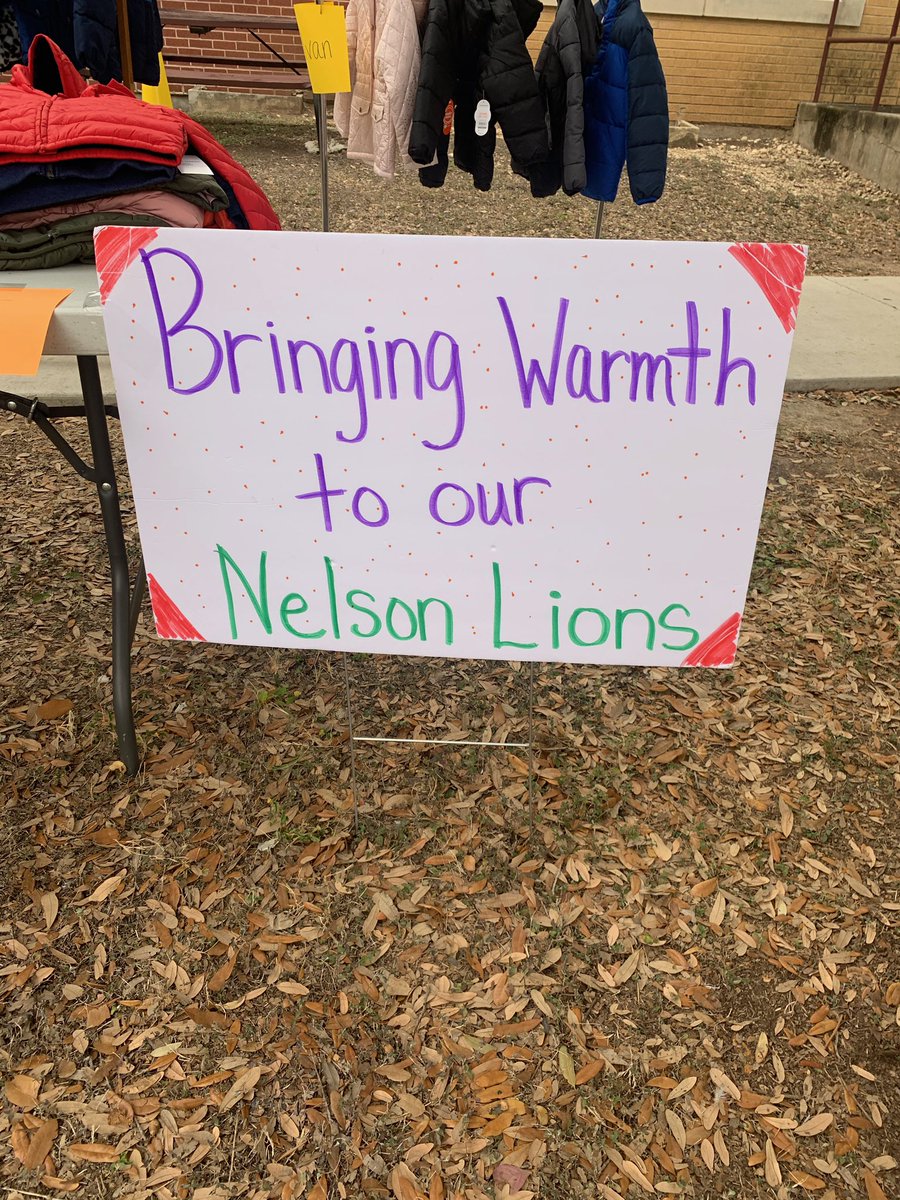 van
Bringing Warmth
to our
Nelson Lions